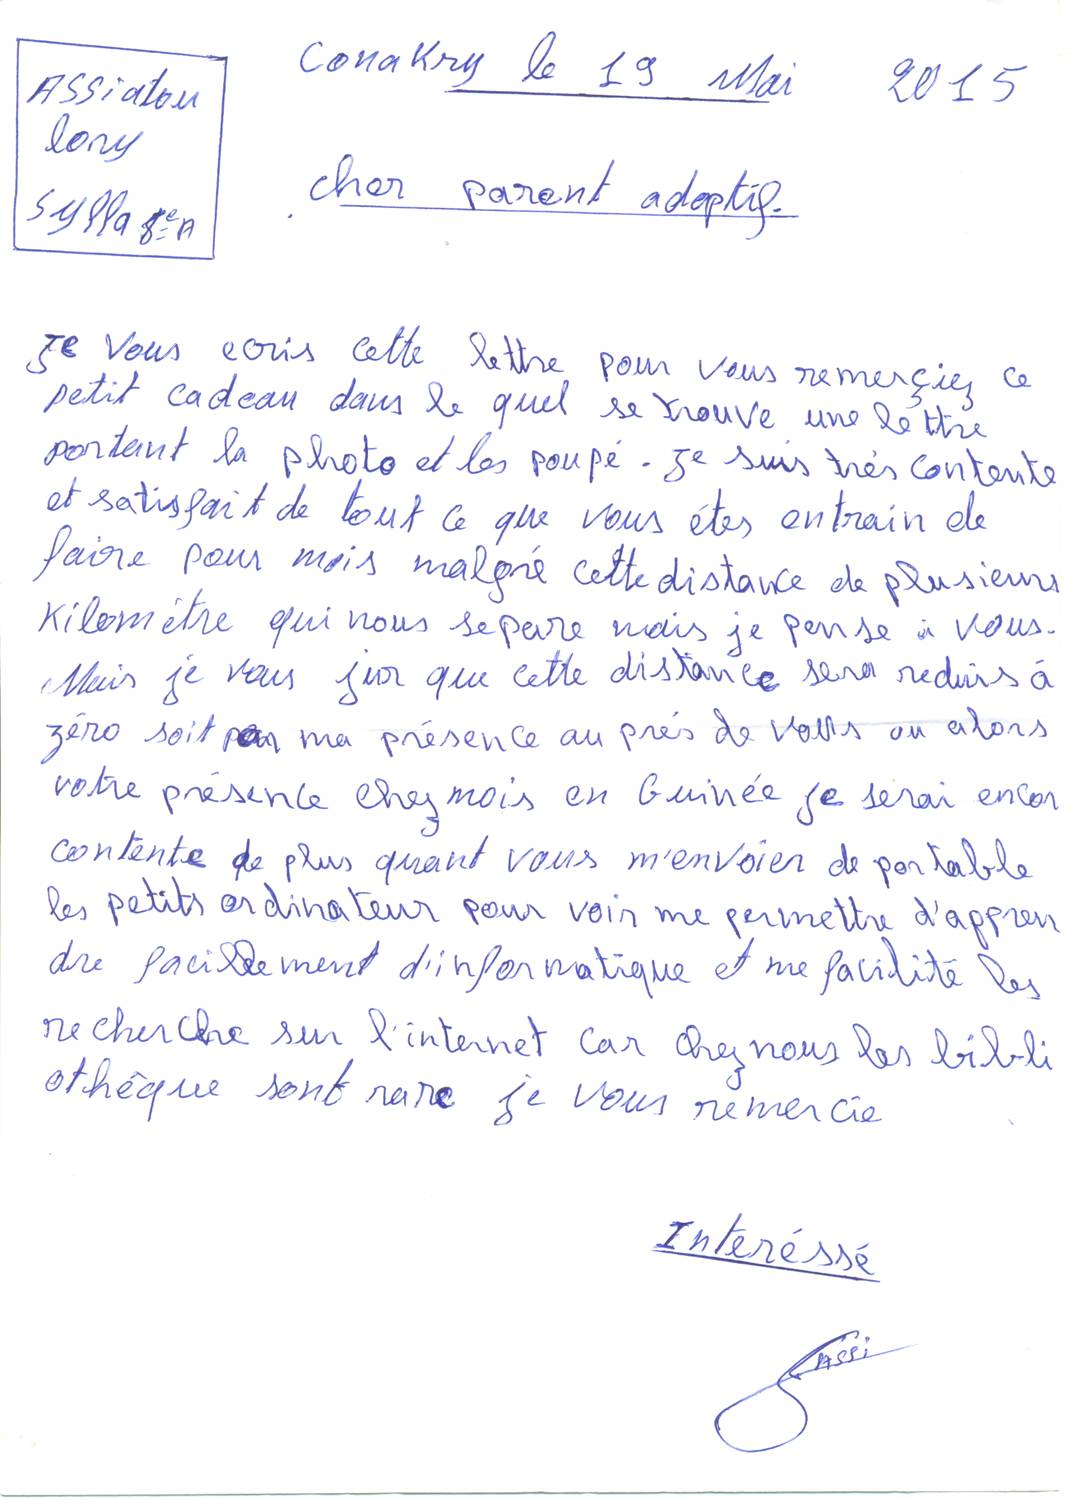 Conakry le 19 Mai 2015
ASSiatou
lony
Sylla 8e A
cher parent adoptif.
Je Vous ecris cette lettre pour vous remerçiez ce
petit cadeau dans le quel se trouve une lettre
portant la photo et les poupé. Je suis très contente
et satisfait de tout ce que vous étes entrain de
faire pour mois malgré cette distance de plusieurs
Kilomètre qui nous separe mais je pense à vous.
Mais je vous jur que cette distance sera reduis à
zéro soit par ma présence au prés de vous ou alors
votre présence chez mois en Guinée je serai encor
contente de plus quant vous m'envoier de portable
les petits ordinateur pour voir me permettre d'appren
dre facillement d'informatique et me facilité les
recherche sur l'internet car chez nous les bibli
othêque sont rare je vous remercie
Interéssé
ASSi